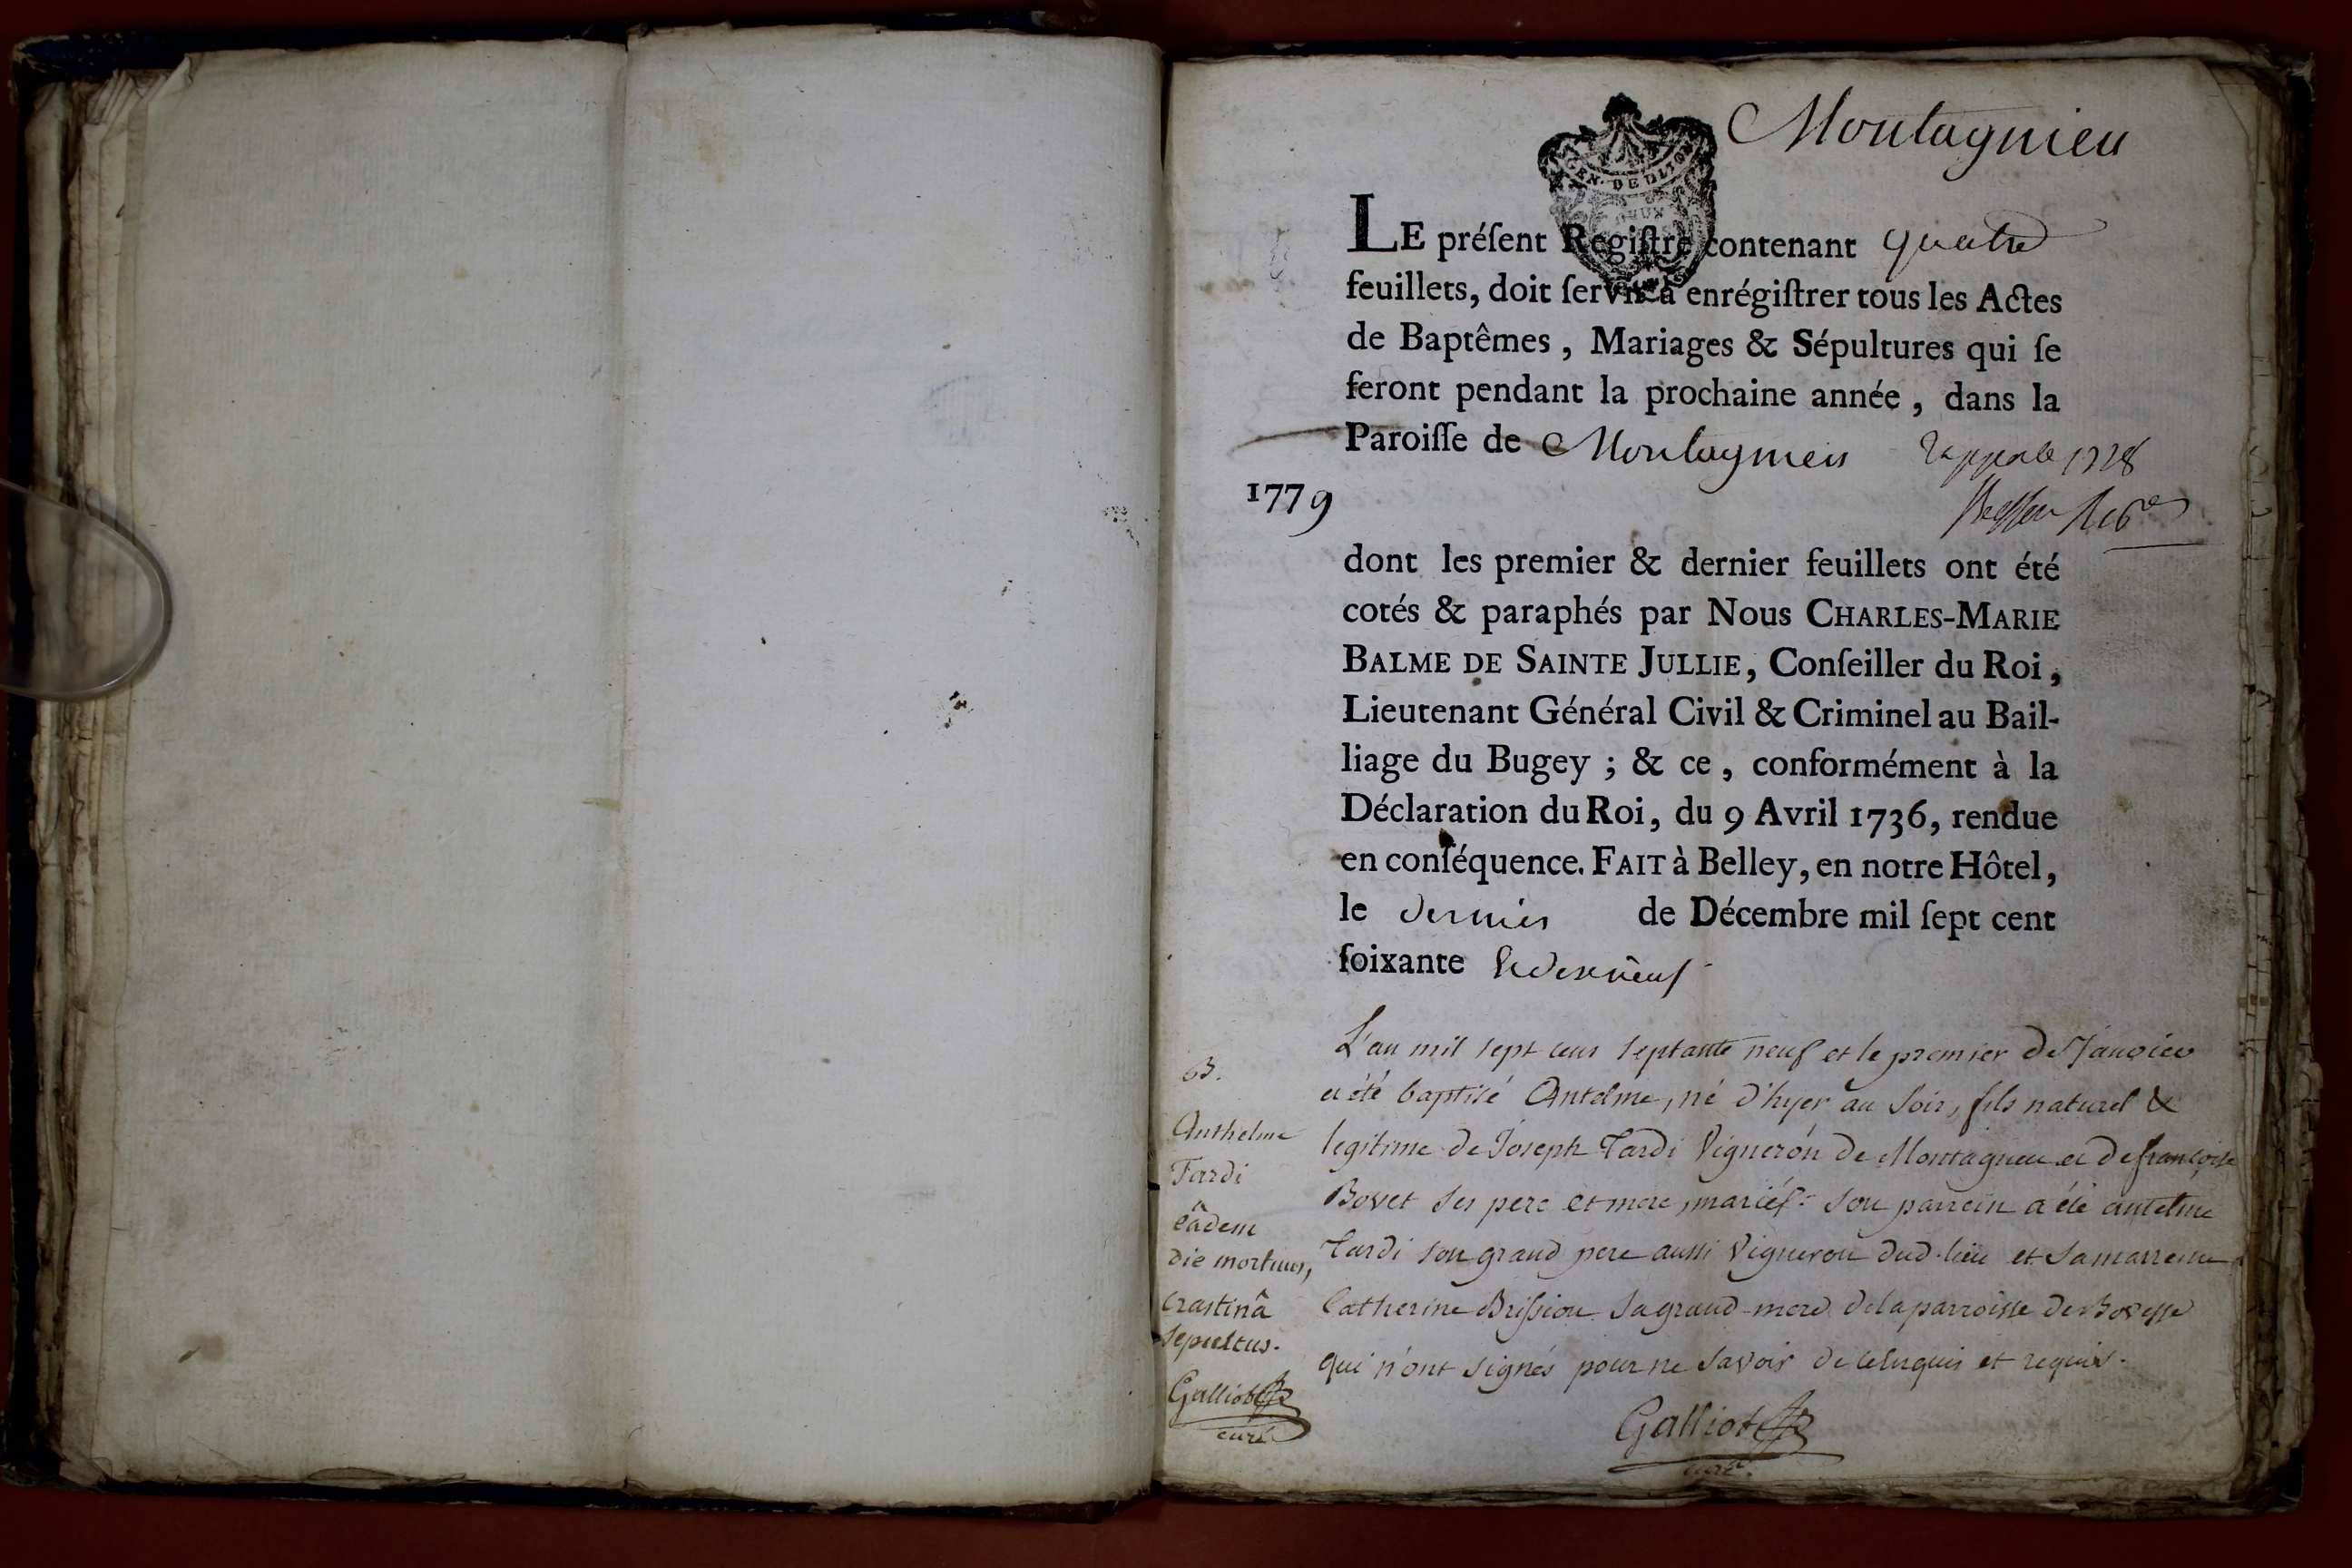 Montagnieu
GEN. DE DIJON
DEUX
LE préſent Regiſtre contenant quatre
feuillets, doit ſervir à enrégiſtrer tous les Actes
de Baptêmes, Mariages & Sépultures qui ſe
feront pendant la prochaine année, dans la
Paroiſſe de Montagnieu 1778
1779
dont les premier & dernier feuillets ont été
cotés & paraphés par Nous CHARLES-MARIE
BALME DE SAINTE JULLIE, Conſeiller du Roi,
Lieutenant Général Civil & Criminel au Bail-
liage du Bugey ; & ce, conformément à la
Déclaration du Roi, du 9 Avril 1736, rendue
en conſéquence. FAIT à Belley, en notre Hôtel,
le dernier de Décembre mil ſept cent
ſoixante
B.
Anthelme
Tardi
eâdem
die mortuus,
crastinâ
sepultus.
Galliot
curé
L'an mil sept cens septante neuf et le premier de Janvier
a été baptisé Antelme, né d'hyer au soir, fils naturel &
legitime de Joseph Tardi Vigneron de Montagneu et de françoise
Bovet ses pere et mere mariés. son parrein a été antelme
Tardi son grand pere aussi Vigneron dud. lieu et sa marreine
Catherine Brission sa grand-mere de la parroisse de
qui n'ont signés pour ne savoir de ce enquis et requis.
Galliot
curé.